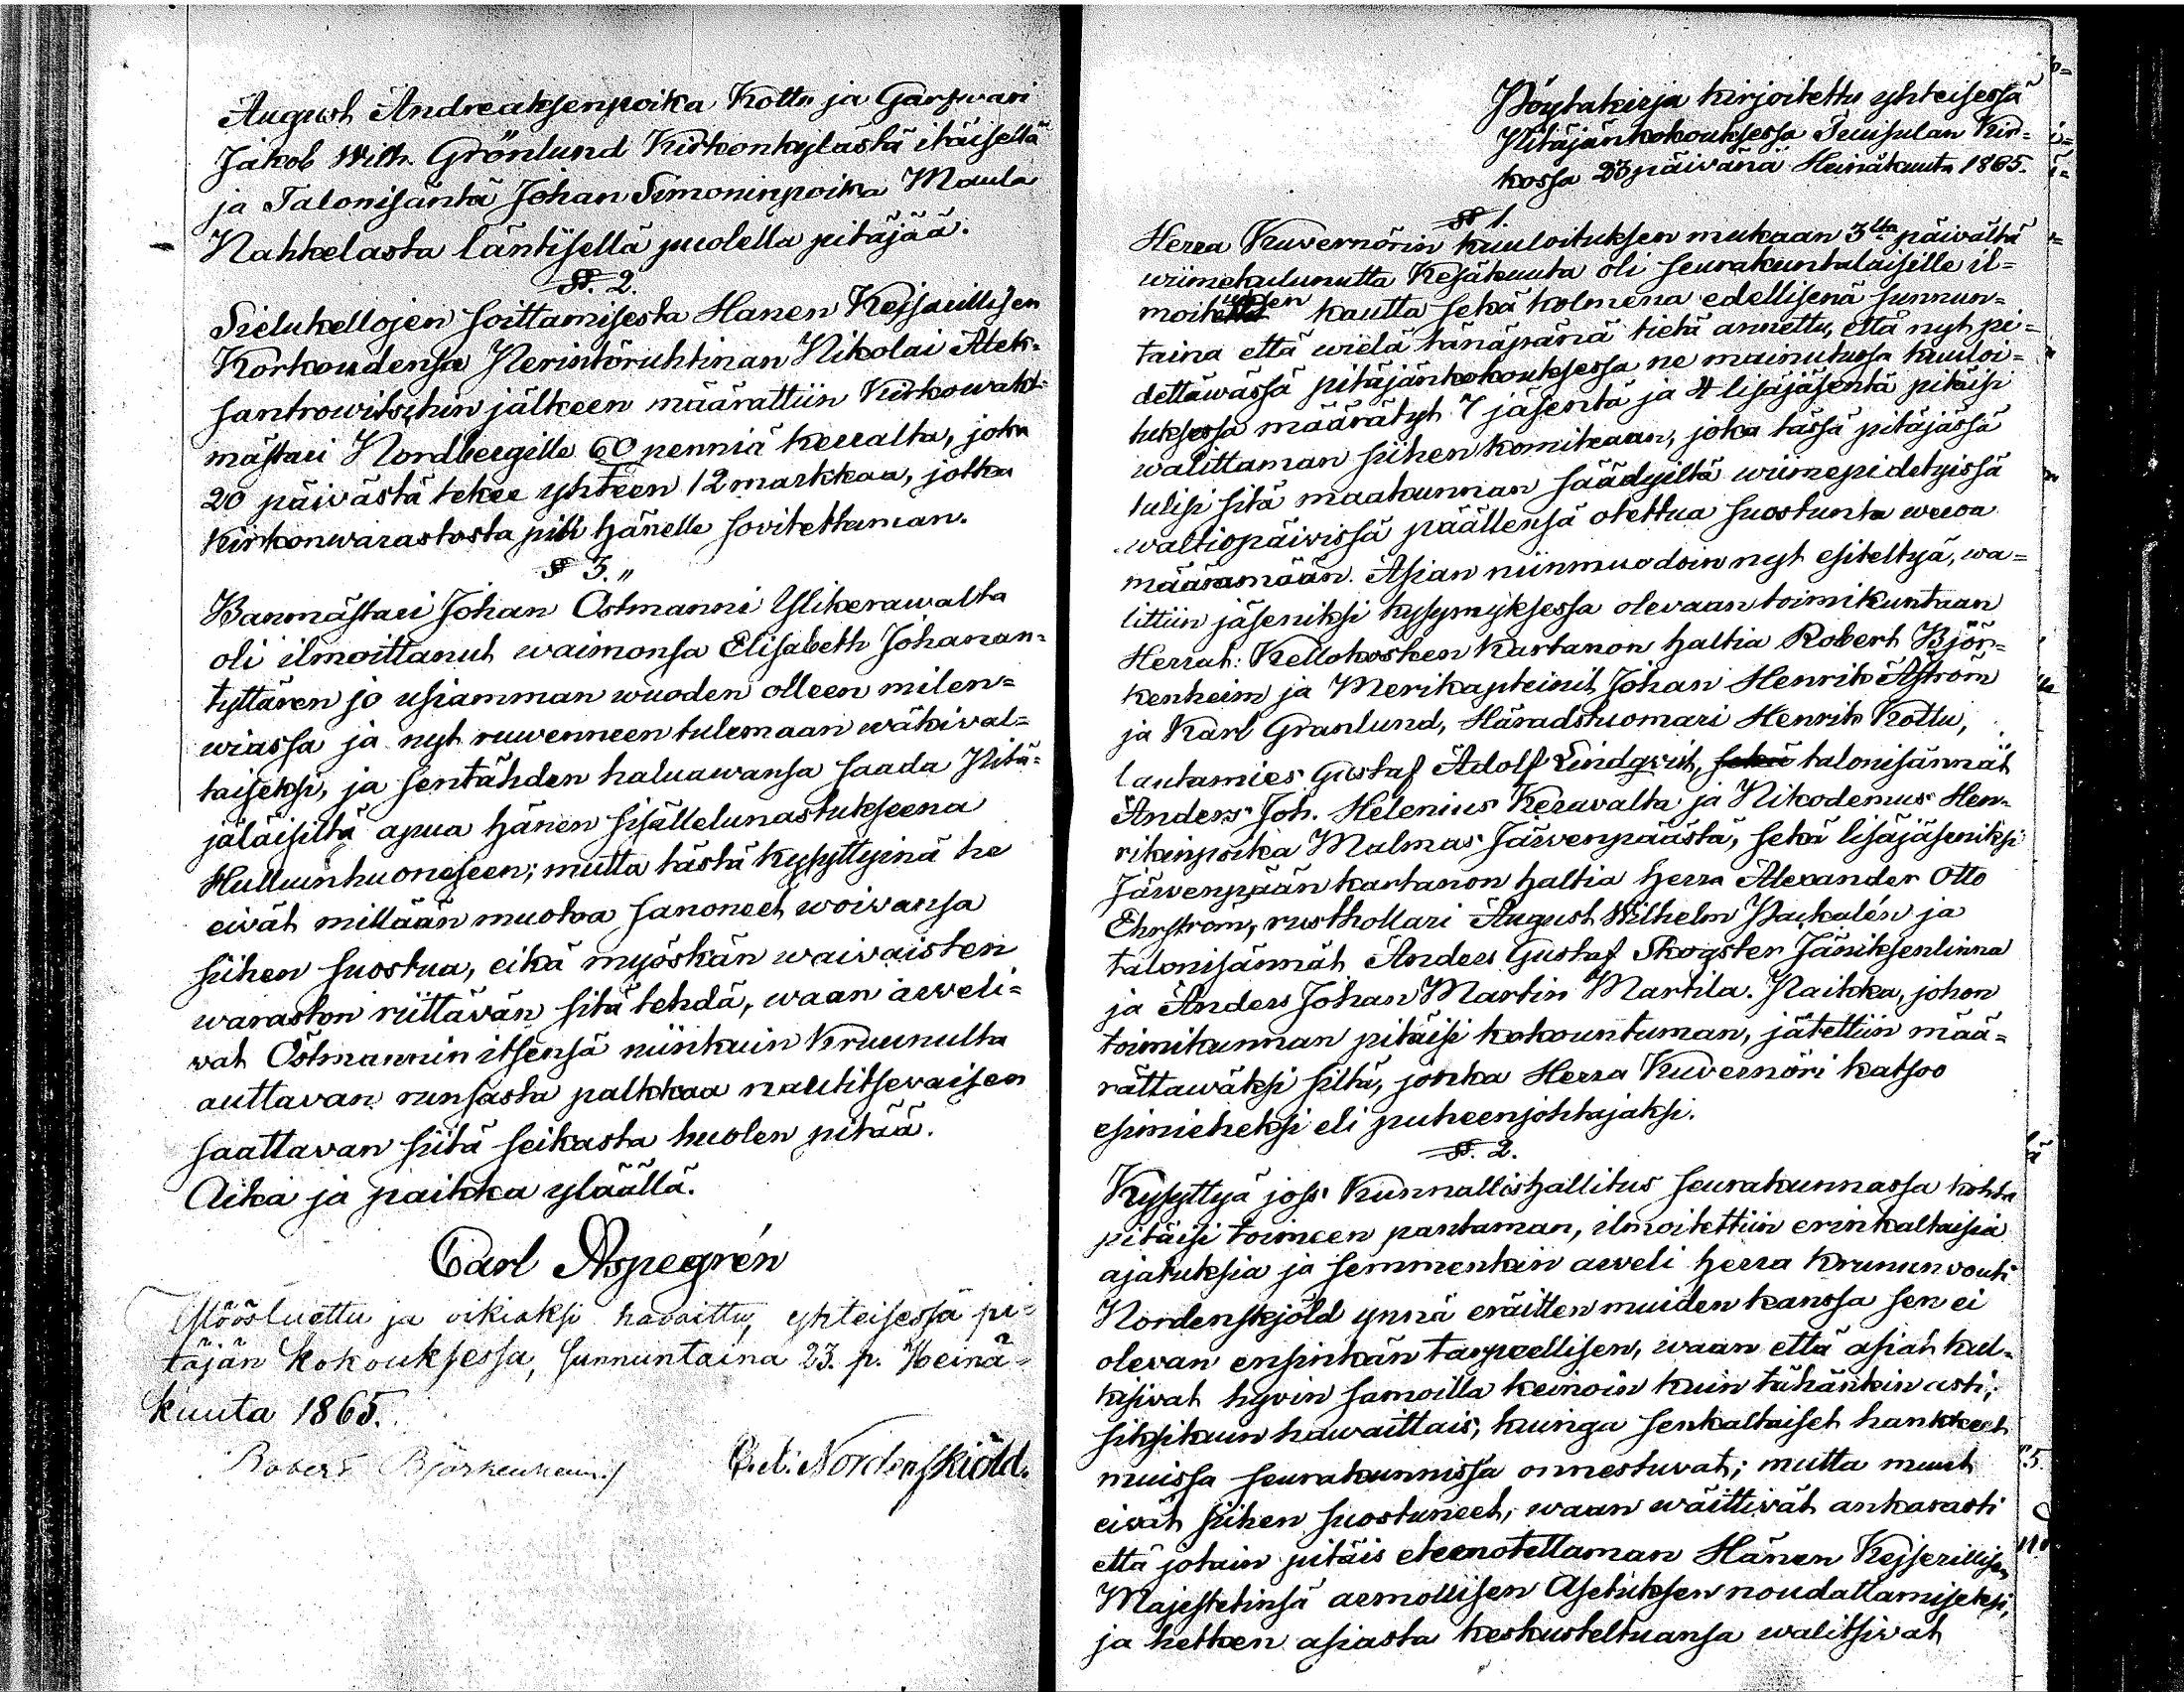 August Andreaksenpoika Kottu ja Garfwari
Jakob Wilh. Grönlund Kirkonkylästä itäisellä
ja Talonisäntä Johan Simoninpoika Maula
Nahkelasta läntisellä puolella pitäjää.
§. 2.
Sielukellojen soittamisesta Hänen Keisarillisen
Korkeudensa Perintöruhtinan Nikolai Alek-
santrowitschin jälkeen määrättiin Kirkowaht-
mästari Nordbergille 60 penniä kerralta, joka
20 päivästä tekee yhteen 12 markkaa, jotka
Kirkonwarastosta piti hänelle sovitettaman.
§ 3."
Banmästari Johan Östmanni Ylikerawalta
oli ilmoittanut waimonsa Elisabeth Johanan-
tyttären jo usiamman wuoden olleen milen-
wiassa ja nyt ruwenneen tulemaan wäkiwal-
taiseksi, ja sentähden haluawansa saada Pitä-
jäläisiltä apua hänen sisällelunastukseena
Hulluinhuoneseen; mutta tästä kysyttyinä he
eivät millään muotoa sanoneet woiwansa
siihen suostua, eikä myöskän waiwaisten
waraston riittävän sitä tehdä, waan arweli-
vat Östmannin itsensä niinkuin Kruunulta
auttavan runsasta palkkaa nautitsevaisen
saattavan siitä seikasta huolen pitää.
Aika ja paikka ylläällä.
Carl Aspegrén
Ylösluettu ja oikiaksi havaittu, yhteisessä pi-
täjän kokouksessa, sunnuntaina 23. p. Heinä-
kuuta 1865.
Robert Björkenheim./ Nordenskiöld.
Pöytäkirja kirjoitettu yhteisessä
Pitäjänkokouksessa Tuusulan Kir-
kossa 23 päivänä Heinäkuuta 1865.
§ 1.
Herra Kuvernörin kuuloituksen mukaan 3lta päivältä
wiimekulunutta Kesäkuuta oli seurakuntalaisille il-
moituksen kautta sekä kolmena edellisenä sunnun-
taina että wielä tänäpänä tietä annettu, että nyt pi-
dettäwässä pitäjänkokouksessa ne mainutussa kuuloi-
tuksessa määrätyt 7 jäsentä ja 4 lisäjäsentä pitäisi
walittaman siihen komiteaan, joka tässä pitäjässä
tulisi sitä maakunnan säädyiltä wiimepidetyissä
waltiopäiwissä päällensä otettua suostunta weroa
määräämään. Asian niinmuodoin nyt esiteltyä, wa-
littiin jäseniksi kysymyksessä olevaan toimikuntaan
Herrat: Kellokosken Kartanon haltia Robert Björ-
kenheim ja Merikapteinit Johan Henrik Åström
ja Karl Granlund, Häradstuomari Henrik Kottu,
lautamies Gustaf Adolf Lindqvist, sekä talonisännät
Anders Joh. Helenius Keravalta ja Nikodemus Hen-
rikinpoika Malmas Järvenpäästä, sekä lisäjäseniksi
Järwenpään kartanon haltia herra Alexander Otto
Ehrström, rusthollari August Wilhelm Paikalén ja
talonisännät Anders Gustaf Skogster Jäniksenlinna
ja Anders Johan Martin Martila. Paikka, johon
toimikunnan pitäisi kokountuman, jätettiin mää-
rättäwäksi siltä, jonka Herra Kuvernöri katsoo
esimieheksi eli puheenjohtajaksi.
§. 2.
Kysyttyä joss Kunnallishallitus seurakunnassa kohta
pitäisi toimeen pantaman, ilmoitettiin erinkaltaisia
ajatuksia ja semmenkin arveli herra Krununvouti
Nordenskjöld ynnä eräitten muiden kanssa sen ei
olevan ensinkän tarpeellisen, waan että asiat kul-
kisivat hyvin samoilla keinoin kuin tähänkin asti,
siksikuin hawaittais, kuinga senkaltaiset hankkeet
muissa seurakunnissa onnestuvat; mutta muut
eivät siihen suostuneet, waan wäittivät ankarasti
että jotain pitäis eteenotettaman Hänen Kejserillisen
Majestetinsä armollisen Asetuksen noudattamiseksi,
ja hetken asiasta keskusteltuansa walitsivat